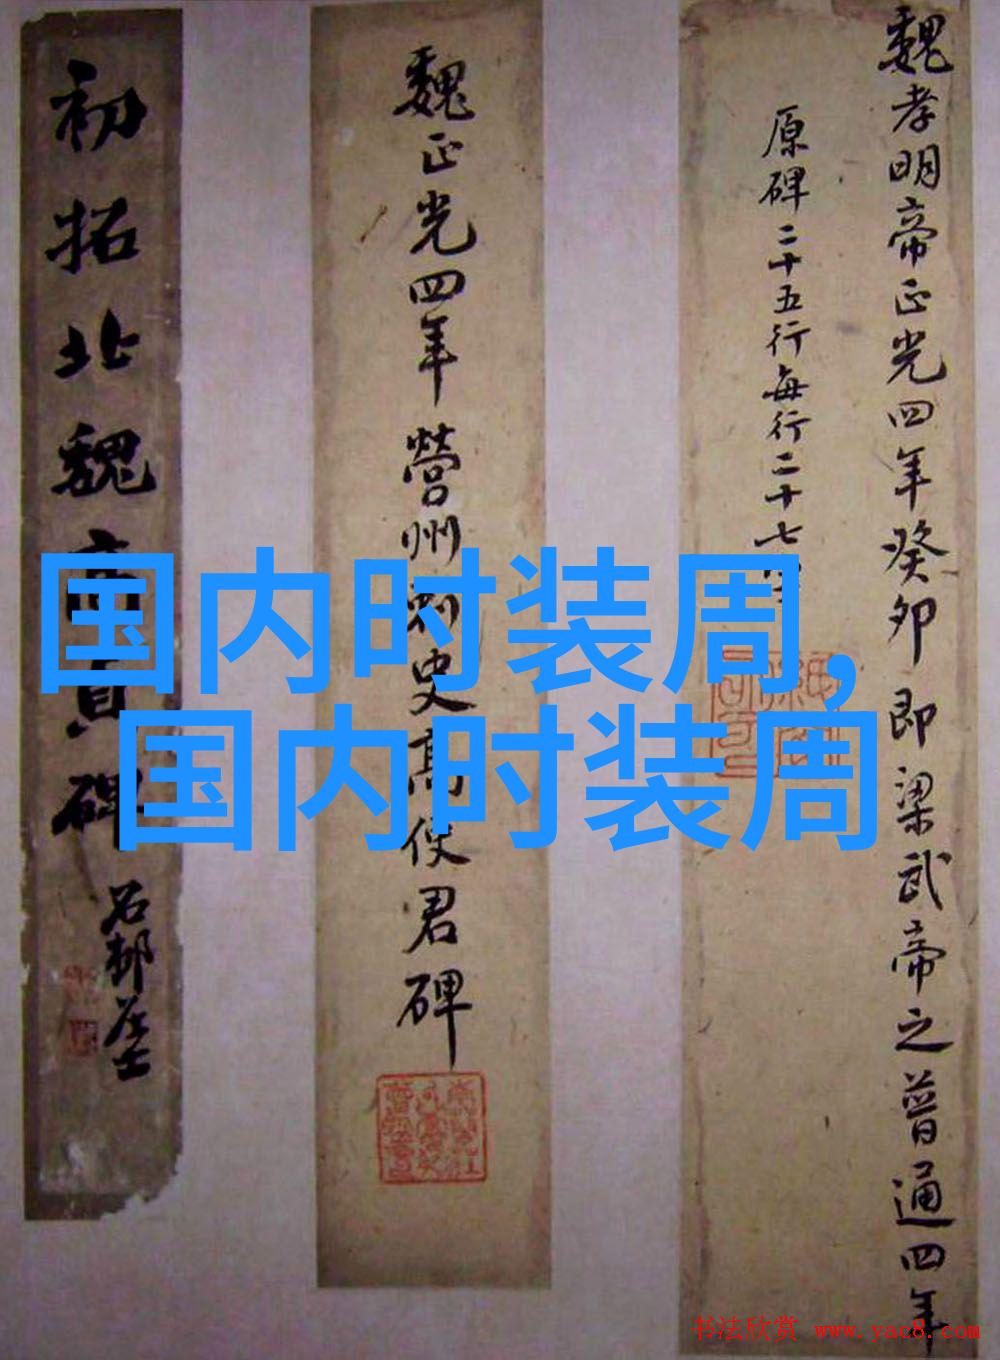 魏孝明帝正光四年癸卯即梁武帝之普通四年
原碑二十五行每行二十七
魏正光四年營州刺史高使君碑
初拓北魏高貞碑
石邨
国内时装周,
国内时装周
书法欣赏 www.yac8.com